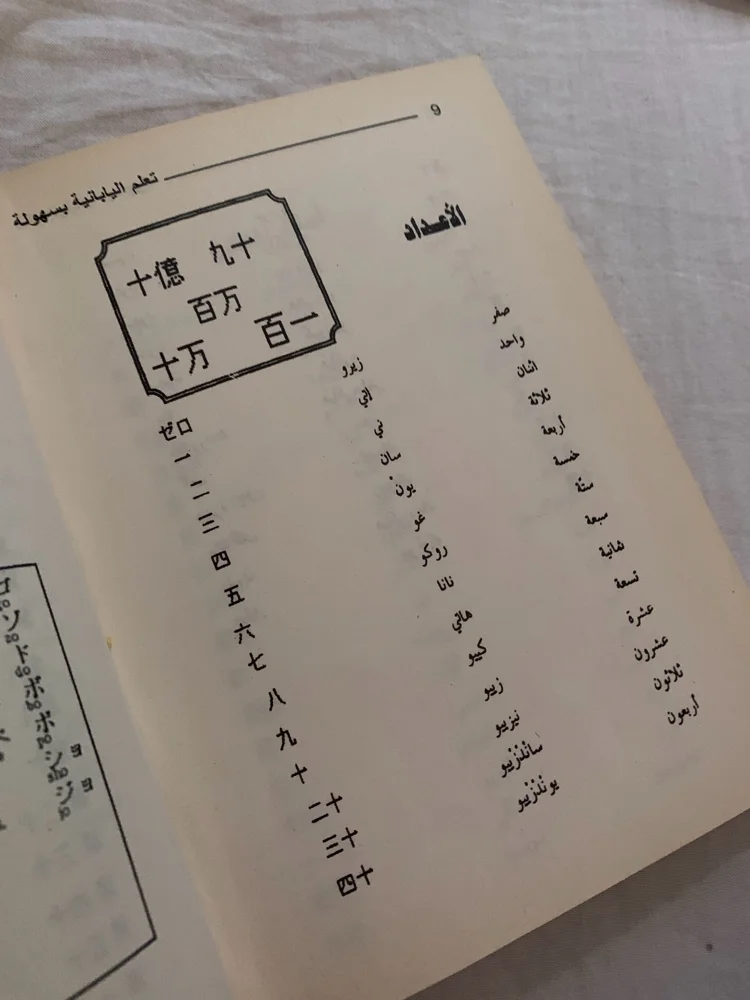 9 تعلم اليابانية بسهولة
الأعداد
十億 九十
百万
十万 百一
صفر زيرو ゼロ
واحد اتي 一
اثنان ني 二
ثلاثة سان 三
أربعة يونْ 四
خمسة غو 五
ستة روكو 六
سبعة نانا 七
ثمانية هاتي 八
تسعة كييو 九
عشرة زييو 十
عشرون نيزييو 二十
ثلاثون 三十
أربعون 四十